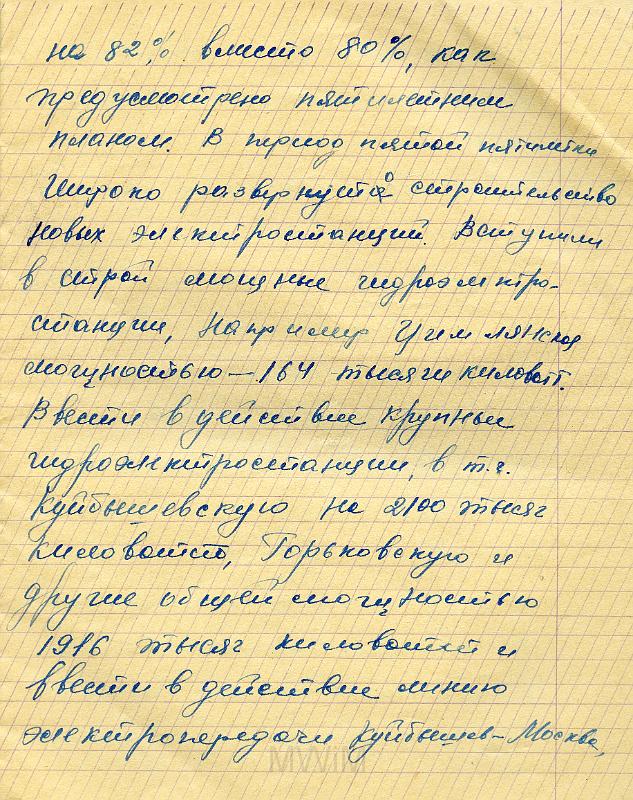 на 82% вместо 80%, как
предусмотрено пятилетним
планом. В период пятой пятилетки
широко развернуто строительство
новых электростанций. Вступили
в строй мощные гидроэлектро-
станции, например Цимлянская
мощностью – 164 тысячи киловатт.
Ввести в действие крупные
гидроэлектростанции, в т.ч.
Куйбышевскую на 2100 тысяч
киловатт, Горьковскую и
другие общей мощностью
1916 тысяч киловатт и
ввести в действие линию
электропередачи Куйбышев – Москва,